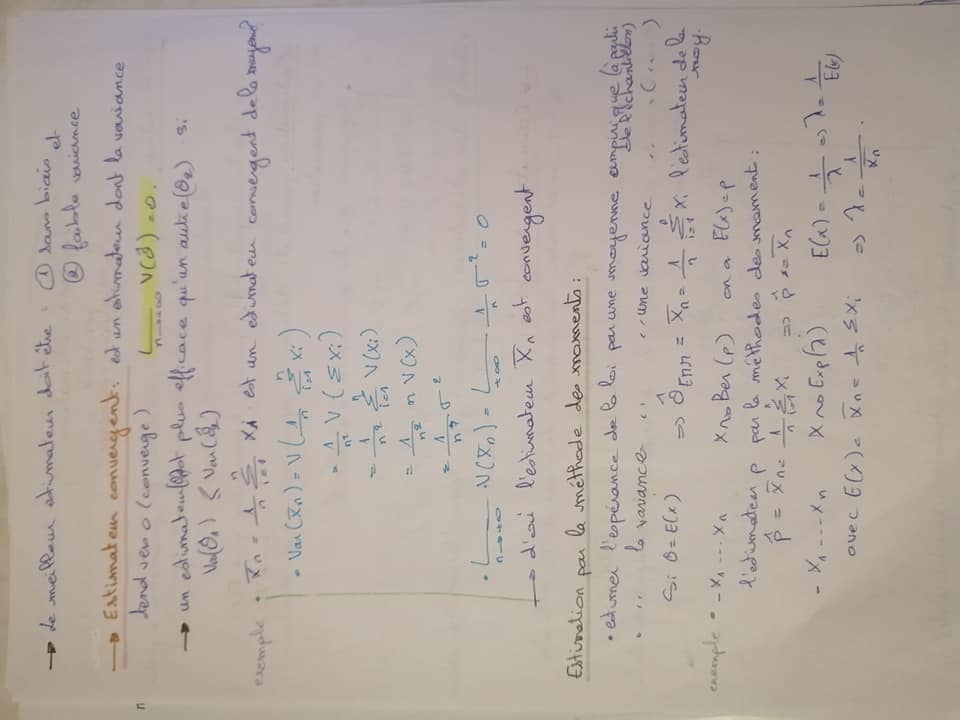 → Le meilleur estimateur doit être : ① sans biais et
② faible variance
→ Estimateur convergent : est un estimateur dont la variance
tend vers 0 (converge) L n→+∞ V(θ̂) = 0.
→ un estimateur(θ̂1) est plus efficace qu'un autre(θ̂2) si
Va(θ̂1) ≤ Var(θ̂2)
exemple • X̄n = 1/n Σ i=1 n Xi est un estimateur convergent de la moyenne?
• Var(X̄n) = V(1/n Σ i=1 n Xi)
= 1/n² V(Σ Xi)
= 1/n² Σ i=1 n V(Xi)
= 1/n² n V(X)
= 1/n σ²
• L n→+∞ V(X̄n) = L +∞ 1/n σ² = 0
→ d'où l'estimateur X̄n est convergent
Estimation par la méthode des moments :
• estimer l'espérance de la loi par une moyenne empirique (à partir de l'échantillon)
• ,, la variance ,, ,, une variance ,, ,, (,, )
Si θ = E(X) ⇒ θ̂EMM = X̄n = 1/n Σ i=1 n Xi l'estimateur de la moy.
exemple • - X1 ... Xn X ~> Ber(p) on a E(X) = p
l'estimateur p par la méthodes des moment :
p̂ = X̄n = 1/n Σ i=1 n Xi ⇒ p̂ = X̄n
- X1 ... Xn X ~> Exp(λ) E(X) = 1/λ ⇒ λ = 1/E(X)
avec E(X) = X̄n = 1/n Σ Xi ⇒ λ = 1/X̄n .